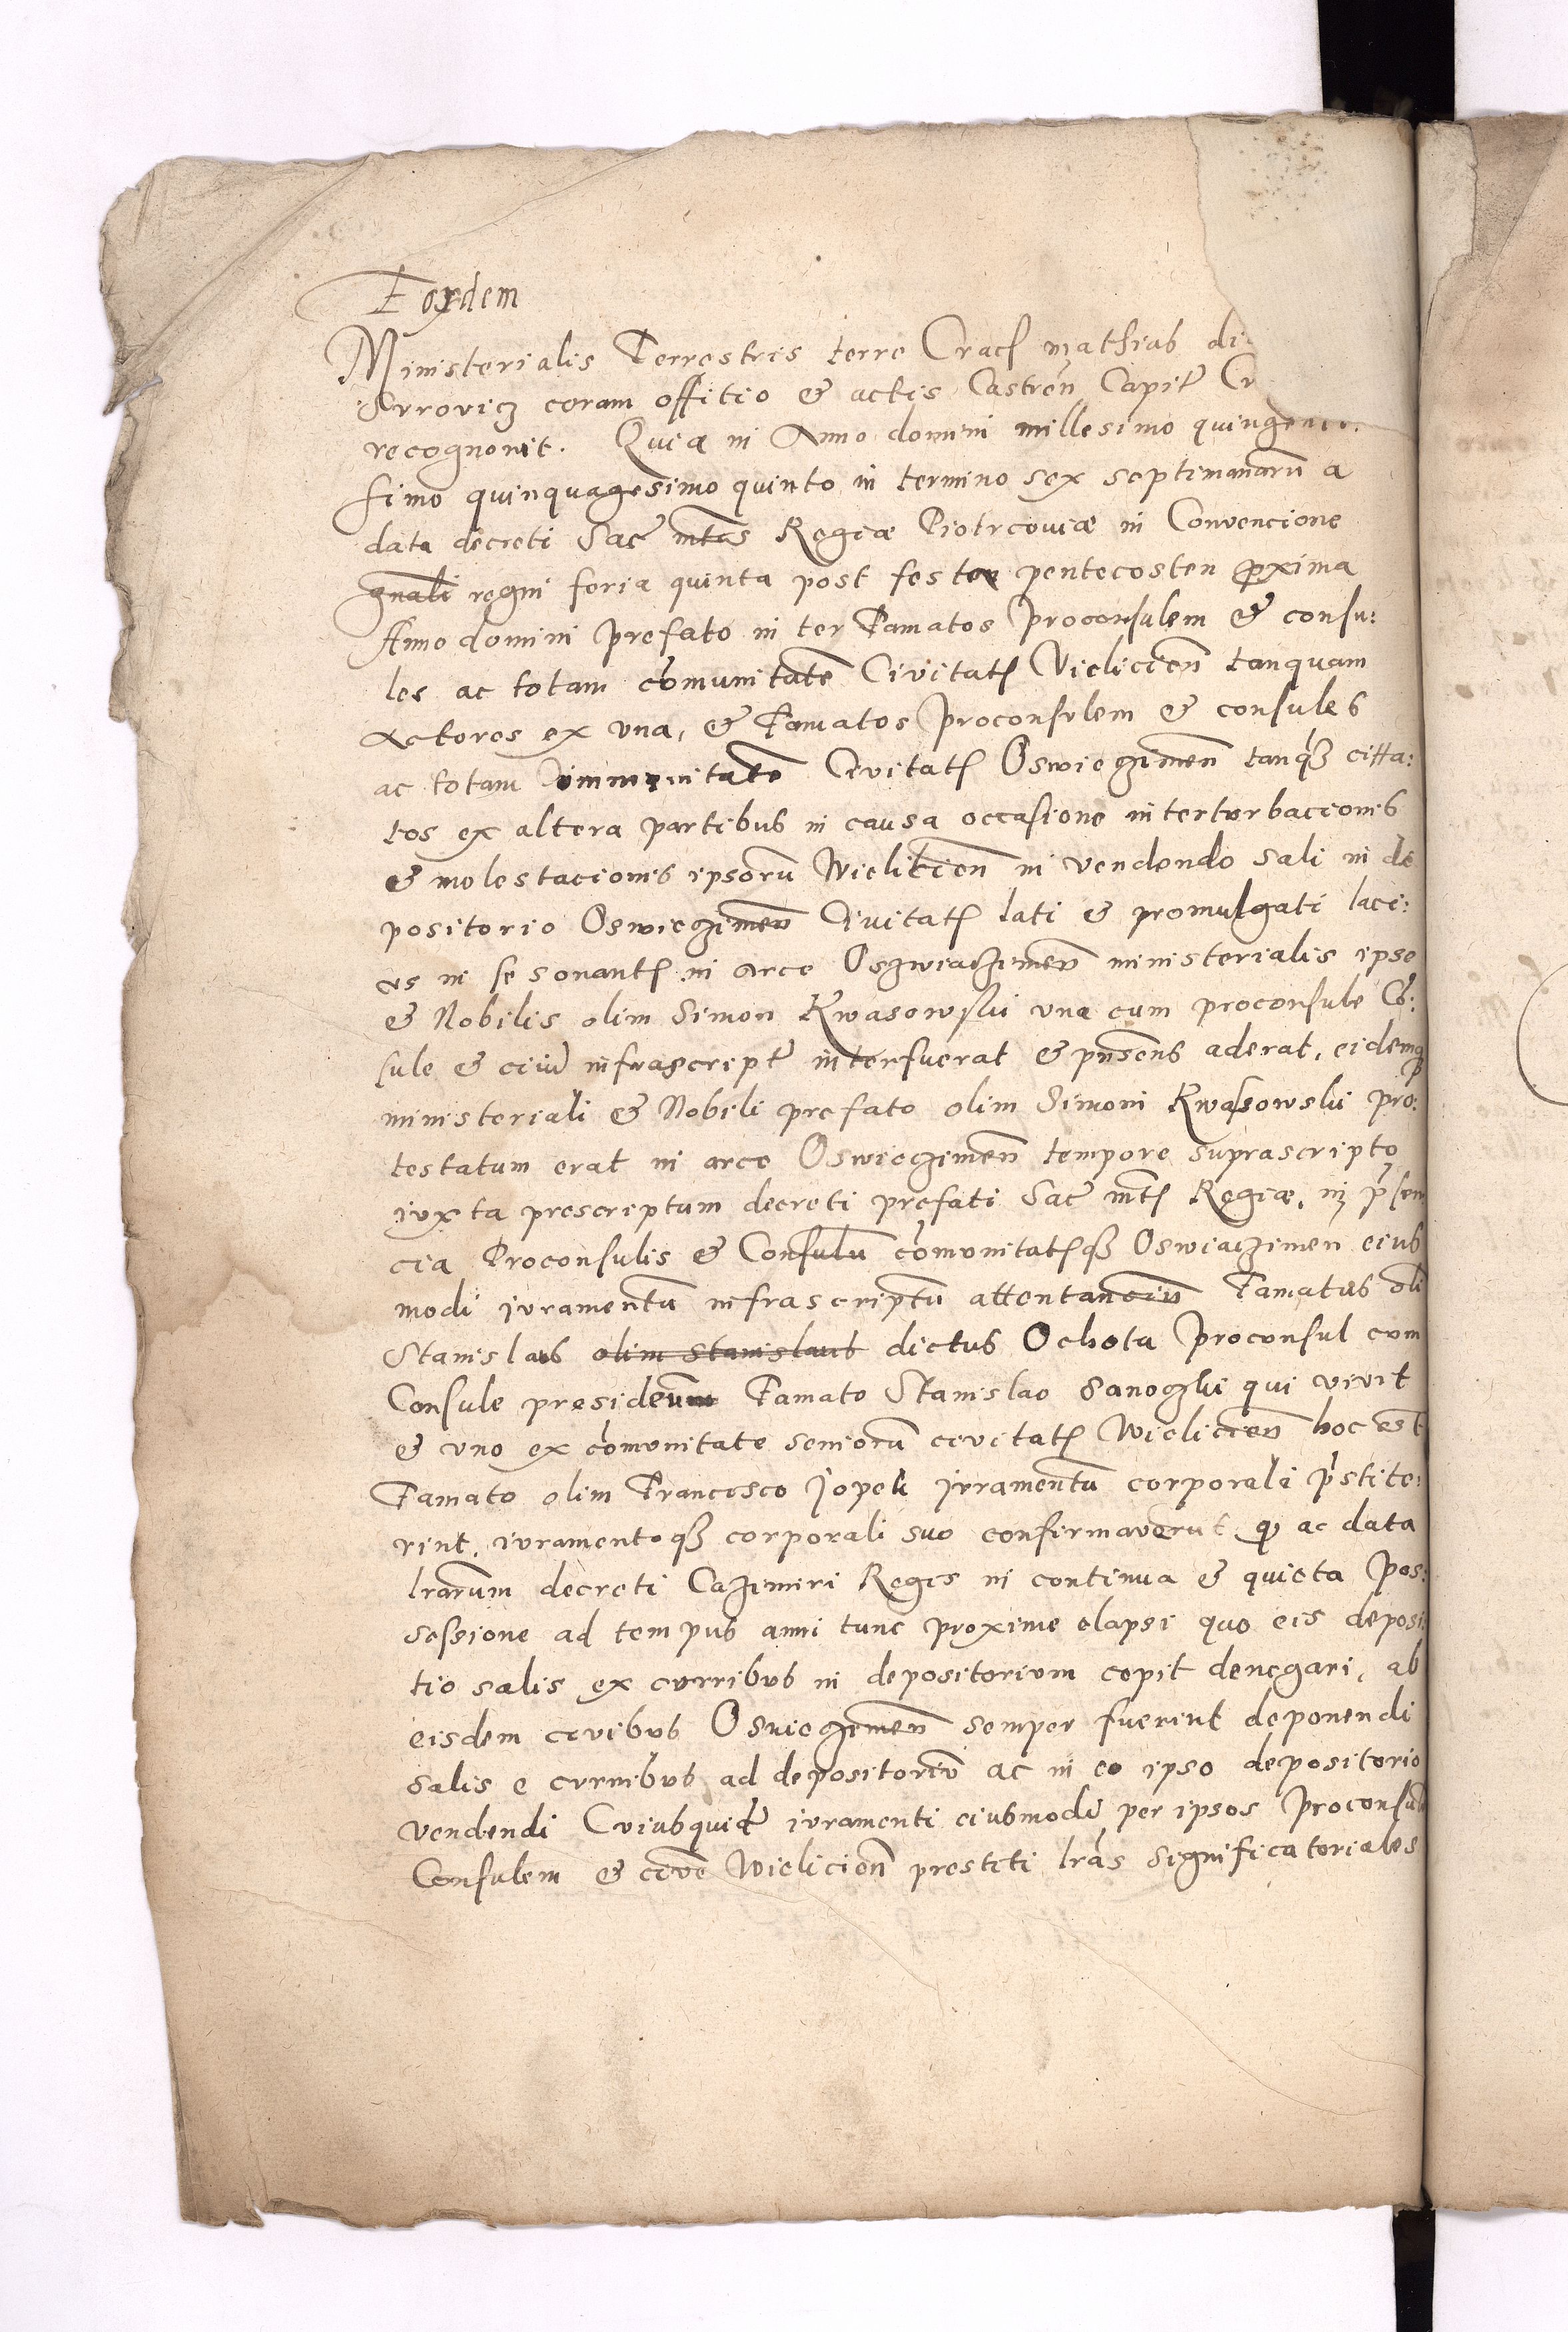 Eoxdem
Ministerialis Terrestris terre Cracz mathias di
coram offitio & actis Castren Capit Cr
recognovit. Quia in Anno domini millesimo quingente
simo quinquagesimo quinto in termino sex septimanaru a
data decreti Sac mtis Regiæ Piotrcoviæ in Convencione
gnali regni feria quinta post festa pentecosten proxima
Anno domini prefato in ter Famatos Proconsulem & consu:
les ac totam comunitate Civitatz Vielicien tanquam
Actores ex una, & Famatos Proconsulem & consules
ac totam Communitate Civitatz Oswieczimen tanqz citta:
tos ex altera partibus in causa occasione interturbacionis
& molestacionis ipsoru Wielicien in vendendo sali in de
positorio Oswieczimen Civitatz lati & promulgati laci:
us in se sonantz in arce Oszwiaczimen ministerialis ipse
& Nobilis olim Simon Kwasowski una cum proconsule Co:
sule & civiu infrascript interfuerat & pnsens aderat, eidemq
ministeriali & Nobili prefato olim Simoni Kwasowski pro:
testatum erat in arce Oswieczimen tempore suprascripto
iuxta prescriptum decreti prefati Sac mtz Regiæ, in psen
cia Proconsulis & Consulu comunitatzqz Oswiaczimen eius
modi iuramentu infrascriptu attentanciu Famatus oli
Stanislaus olim Stanislaus dictus Ochota Proconsul cum
Consule presideum Famato Stanislao Sanoczki qui vivit
& uno ex comunitate senioru civitatz Wielicien hoc est
Famato olim Francisco Jopek iuramentu corporale pstite:
rint, iuramentoqz corporali suo confirmaverut q ac data
lrarum decreti Cazimiri Regis in continua & quieta Pos:
sessione ad tempus anni tunc proxime elapsi quo eis deposi
tio salis ex curribus in depositorium cepit denegari, ab
eisdem civibus Osvieczimen semper fuerint deponendi
salis e curribus ad depositoriu ac in eo ipso depositorio
vendendi Cuiusquide iuramenti eiusmodi per ipsos Proconsule
Consulem & cive Wielicien prestiti lras significatoriales